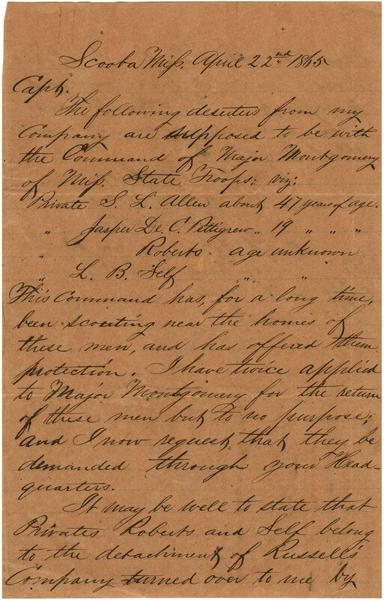 Scooba Miss. April 22nd 1865
Capt.
The following deserters from my
Company are supposed to be with
the Command of Major Montgomery
of Miss. State Troops: viz:
Private S. L. Allen about 47 years of age.
" Jasper De. C. Pettigrew " 19 " " "
" Roberts. age unknown
" L. B. Self " "
This command has, for a long time,
been scouting near the homes of
these men, and has offered them
protection. I have twice applied
to Major Montgomery for the return
of these men but to no purpose;
and I now request that they be
demanded through your Head-
quarters.
It may be well to state that
Privates Roberts and Self belong
to the detachment of Russell's
Company turned over to me by